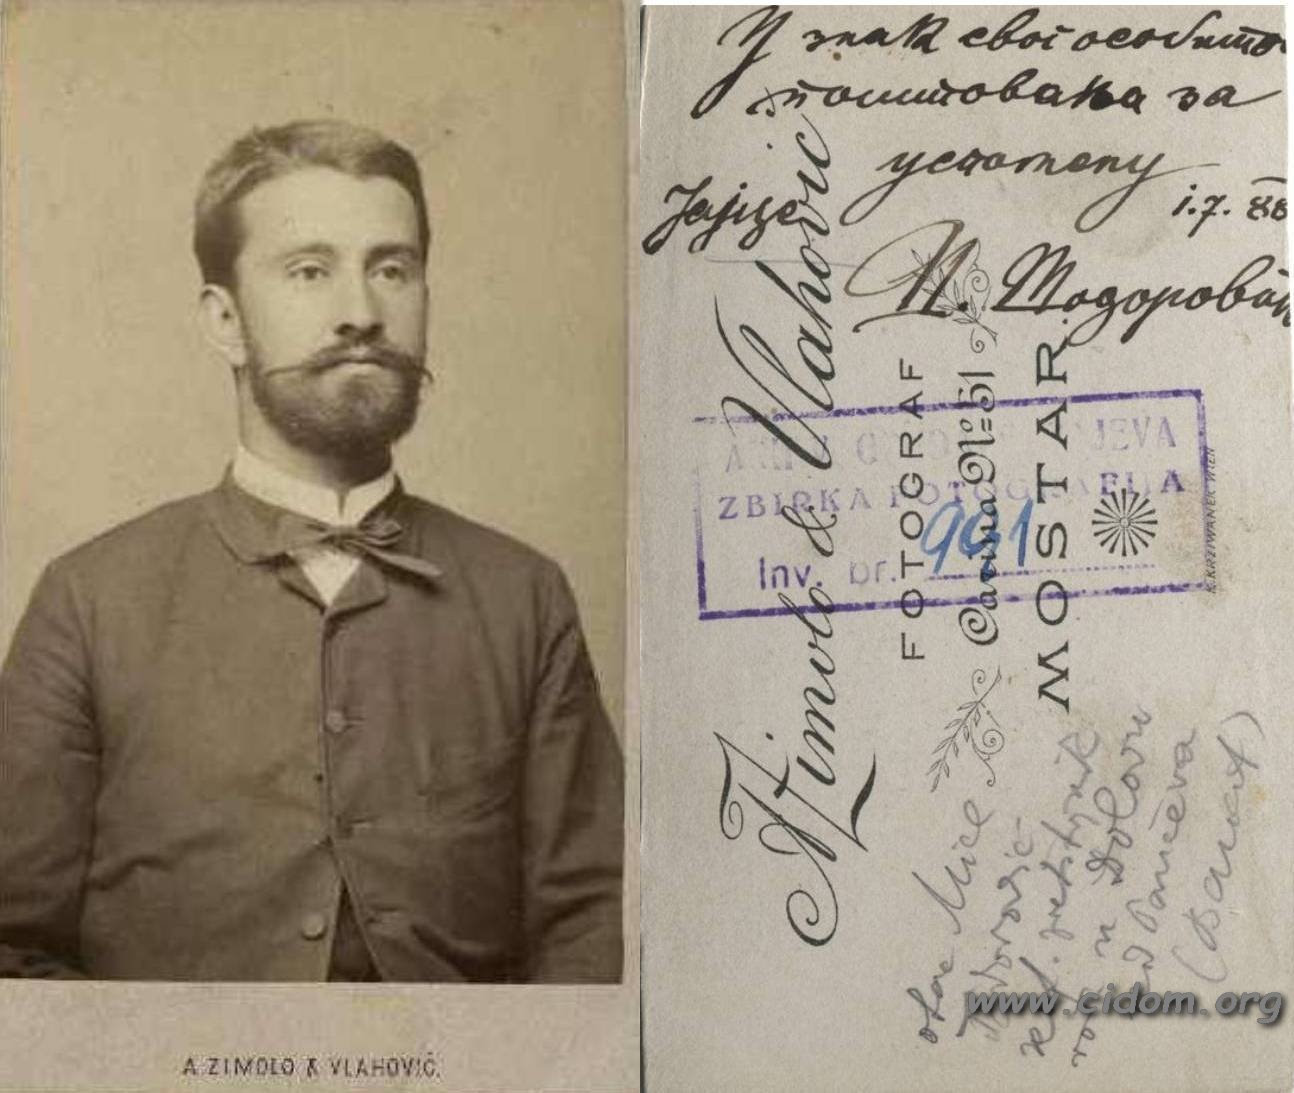 A. ZIMOLO & VLAHOVIĆ.
У знак свог особито
поштовања за
успомену
Јајце 1.7.88
П. Тодоровић
Zimolo & Vlahović
FOTOGRAF
Carina №=51
MOSTAR.
K. KRZIWANEK WIEN
JEVA
ZBIRKA FOTOGRAFIJA
Inv. br. 991
otac Mice
Todorović
rođ. u Dolovu
kod Pančeva
(Banat)
www.cidom.org